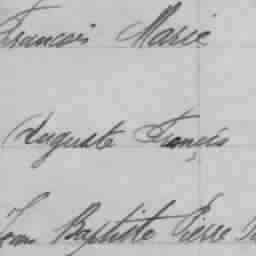 François Marie
Auguste François
Jean Baptiste Pierre